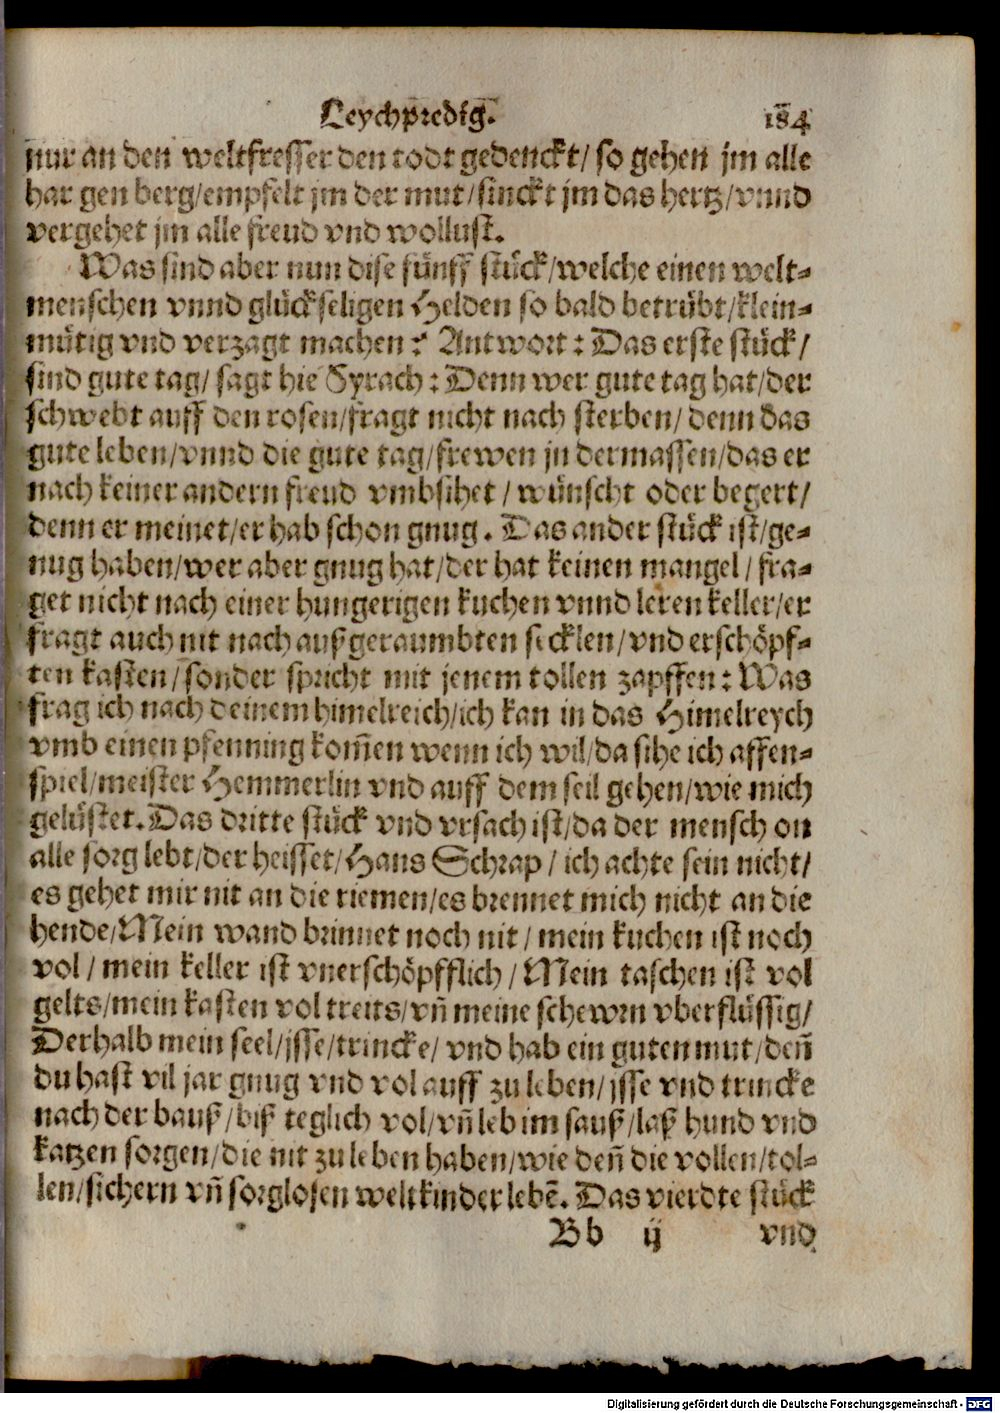 Leychpredig. 184
nur an den weltfresser den todt gedenckt/ so gehen jm alle
har gen berg/empfelt jm der mut/sinckt jm das hertz/vnnd
vergehet jm alle freud vnd wollust.
Was sind aber nun dise fünff stück/welche einen welt-
menschen vnnd glückseligen Helden so bald betrübt/klein-
mütig vnd verzagt machen? Antwort: Das erste stück/
sind gute tag/ sagt hie Syrach: Denn wer gute tag hat/der
schwebt auff den rosen/fragt nicht nach sterben/ denn das
gute leben/vnnd die gute tag/frewen jn dermassen/das er
nach keiner andern freud vmbsihet/ wünscht oder begert/
denn er meinet/er hab schon gnug. Das ander stück ist/ge-
nug haben/wer aber gnug hat/der hat keinen mangel/ fra-
get nicht nach einer hungerigen kuchen vnnd leren keller/er
fragt auch nit nach außgeraumbten secklen/vnd erschöpf-
ten kasten/sonder spricht mit jenem tollen zapffen: Was
frag ich nach deinem himelreich/ich kan in das Himelreych
vmb einen pfenning kom̃en wenn ich wil/da sihe ich affen-
spiel/meister Hemmerlin vnd auff dem seil gehen/wie mich
gelüstet. Das dritte stück vnd vrsach ist/da der mensch on
alle sorg lebt/der heisset/Hans Schrap/ ich achte sein nicht/
es gehet mir nit an die riemen/es brennet mich nicht an die
hende/Mein wand brinnet noch nit/ mein kuchen ist noch
vol/ mein keller ist vnerschöpfflich/ Mein taschen ist vol
gelts/mein kasten vol treits/vñ meine schewrn vberflüssig/
Derhalb mein seel/jsse/trincke/ vnd hab ein guten mut/deñ
du hast vil jar gnug vnd vol auff zu leben/jsse vnd trincke
nach der bauß/biß teglich vol/vñ leb im sauß/laß hund vnd
katzen sorgen/die nit zu leben haben/wie deñ die vollen/tol-
len/sichern vñ sorglosen weltkinder lebẽ. Das vierdte stück
Bb ij vnd
Digitalisierung gefördert durch die Deutsche Forschungsgemeinschaft - DFG